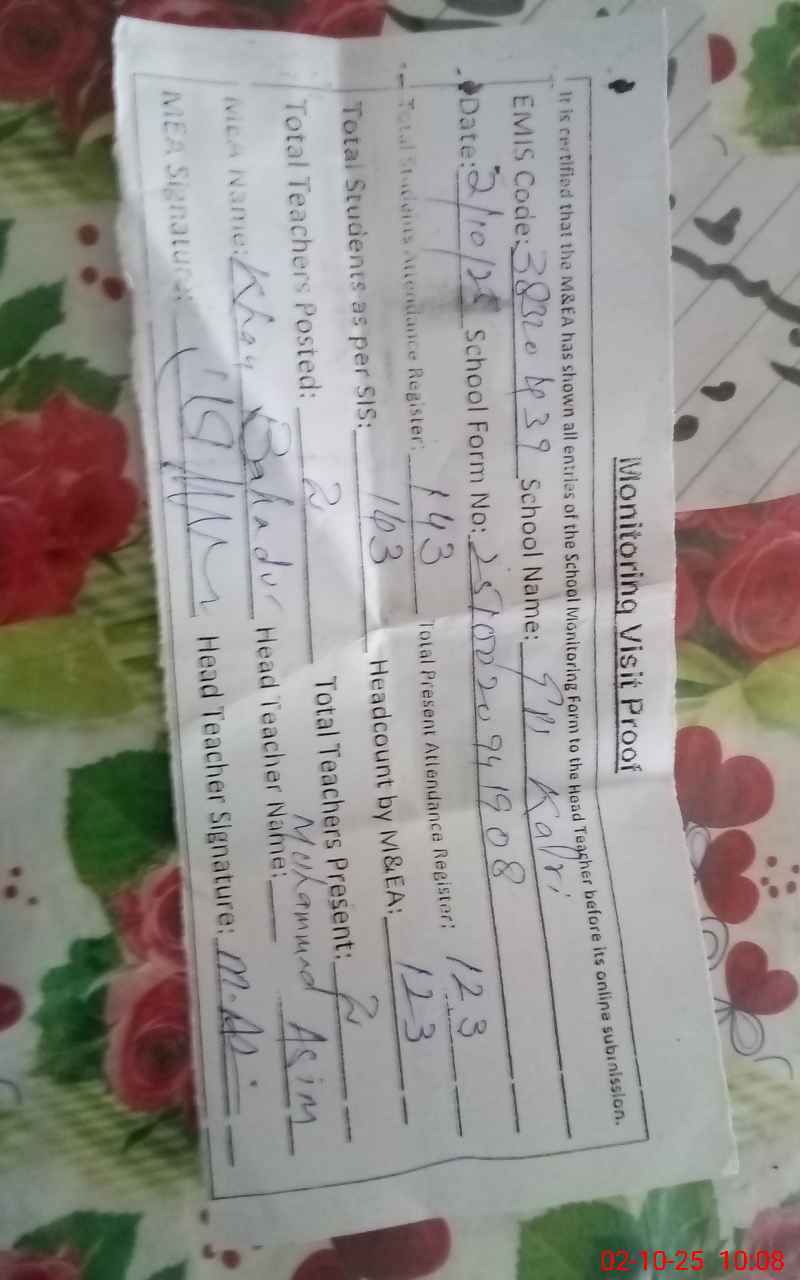 Monitoring Visit Proof
It is certified that the M&EA has shown all entries of the School Monitoring Form to the Head Teacher before its online submission.
EMIS Code: 38320439 School Name: GPS Kalri
Date: 2/10/25 School Form No: 251002209941908
Total Students Attendance Register: 143 Total Present Attendance Register: 123
Total Students as per SIS: 163 Headcount by M&EA: 123
Total Teachers Posted: 2 Total Teachers Present: 2
MEA Name: Khan Bahadur Head Teacher Name: Muhammad Asim
MEA Signature: Head Teacher Signature:
02-10-25 10:08